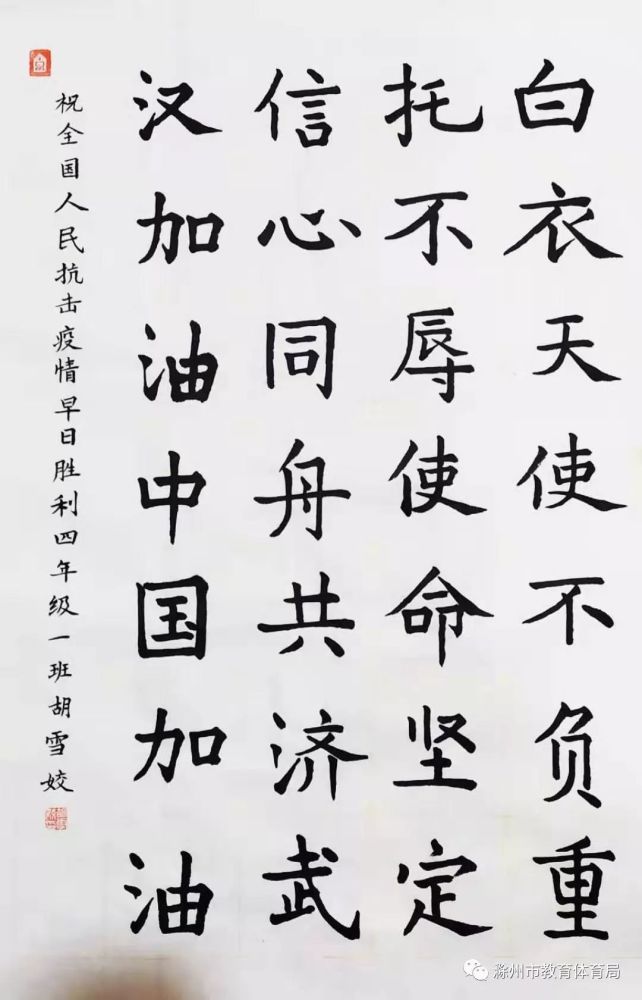 白衣天使不负重
托不辱使命坚定
信心同舟共济武
汉加油中国加油
祝全国人民抗击疫情早日胜利四年级一班胡雪姣
滁州市教育体育局